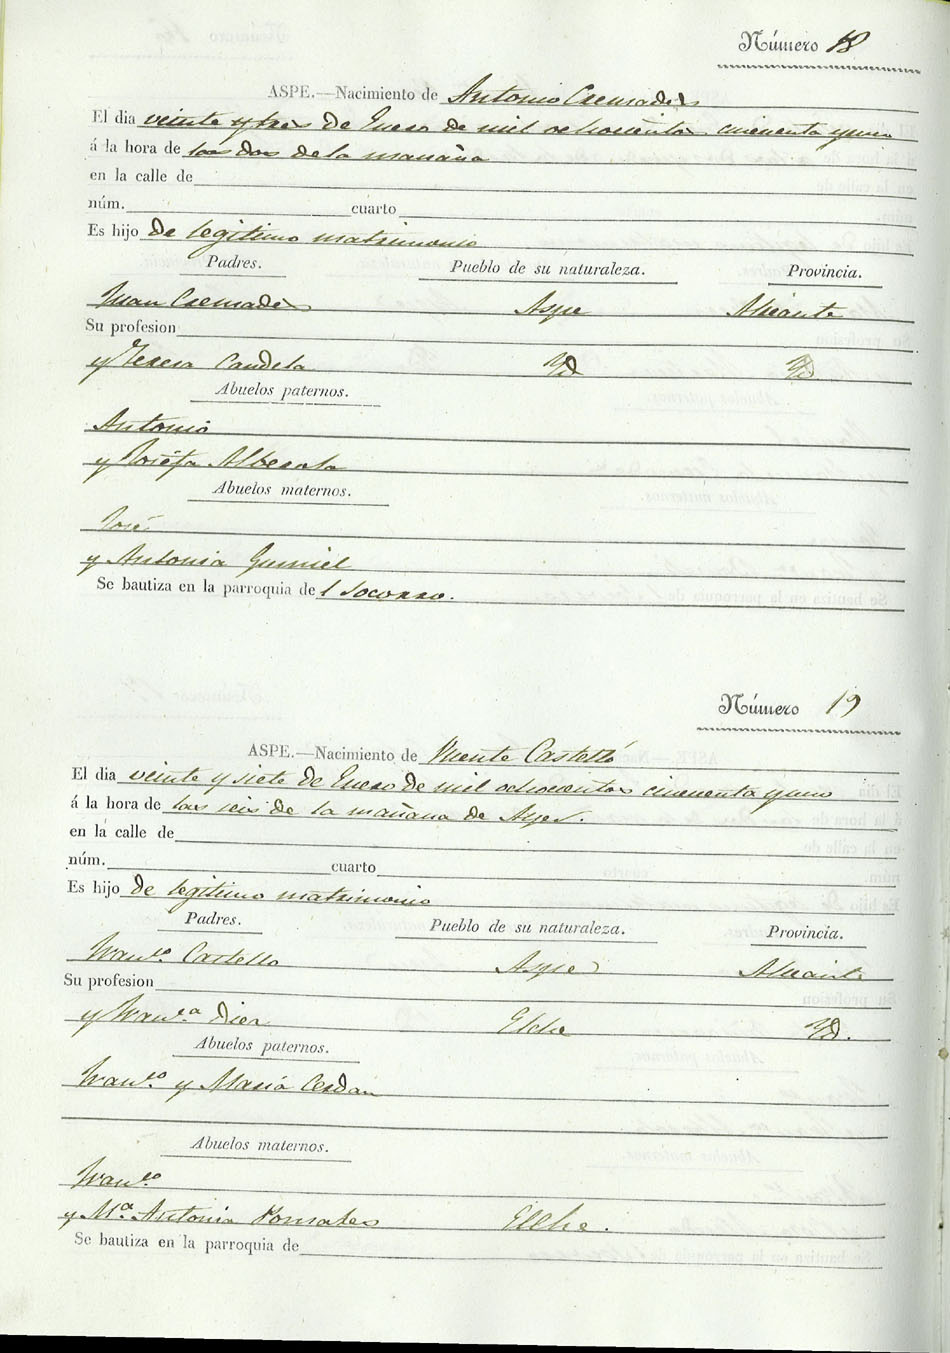 Número 18
ASPE.—Nacimiento de Antonio Cremades
El dia veinte y tres de Enero de mil ochocientos cincuenta y uno
á la hora de las dos de la mañana
en la calle de
núm. cuarto
Es hijo de legitimo matrimonio
Padres. Pueblo de su naturaleza. Provincia.
Juan Cremades Aspe Alicante
Su profesion
y Teresa Candela Yd Yd
Abuelos paternos.
Antonio
y Josefa Alberola
Abuelos maternos.
José
y Antonia Gumiel
Se bautiza en la parroquia de l Socorro.
Número 19
ASPE.—Nacimiento de Vicente Castelló
El dia veinte y siete de Enero de mil ochocientos cincuenta y uno
á la hora de las seis de la mañana de Ayer.
en la calle de
núm. cuarto
Es hijo de legitimo matrimonio
Padres. Pueblo de su naturaleza. Provincia.
Franco. Castello Aspe Alicante
Su profesion
y Franca. Dier Elche Yd.
Abuelos paternos.
Franco. y Maria Cerdan
Abuelos maternos.
Franco
y Ma. Antonia Ponsales Elche.
Se bautiza en la parroquia de